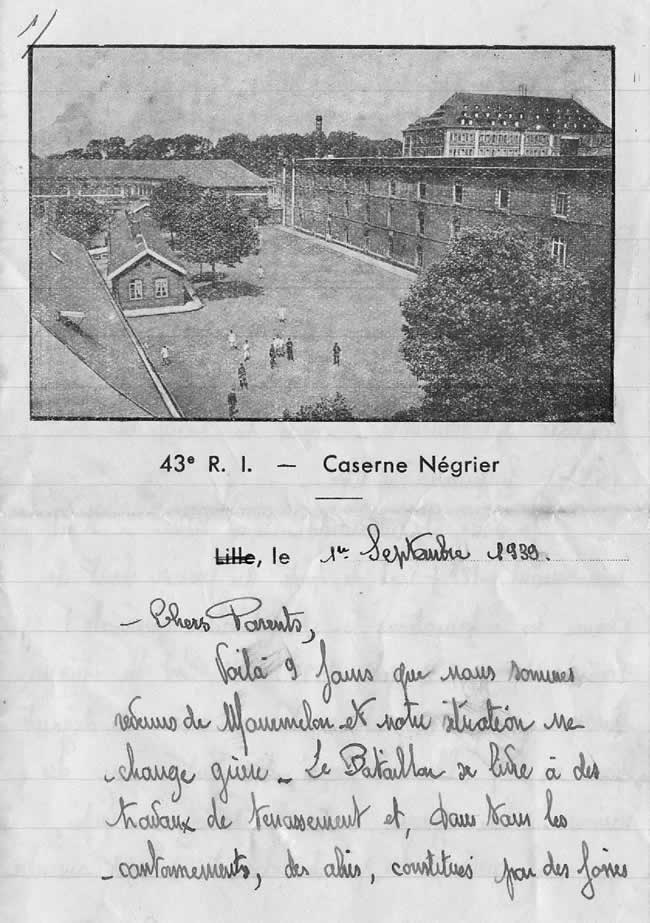 1/
43e R. I. — Caserne Négrier
Lille, le 1er Septembre 1939.
- Chers Parents,
Voilà 9 jours que nous sommes
revenus de Mourmelon et notre situation ne
change guère - Le Bataillon se livre à des
travaux de terrassement et, dans tous les
cantonnements, des abris, constitués par des